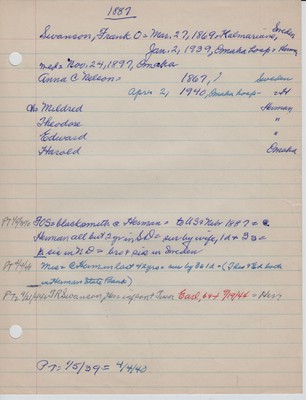 1887
Swanson, Frank O = Mar. 27, 1869, Halmariand, Sweden
Jan. 2, 1939, Omaha hosp = Herman
md = Nov. 24, 1897, Omaha
Anna C Nelson = 1867, ? Sweden
April 2, 1940, Omaha hosp - = H
Ch Mildred Herman
Theodore "
Edward "
Harold Omaha
FOS = blacksmith @ Herman = to US = Nebr 1887 = @
Herman all but 2 yr in SD = sur by wife, 1d & 3s =
sis in ND = bro & sis in Sweden
Mrs = @ Herman last 42 yrs = sur by 3s 1d = (Theo & Ed both
in Herman State Bank)
T R Swanson, Herman Carl, 7/19/46 =
PT = 1/5/39 = 4/4/40